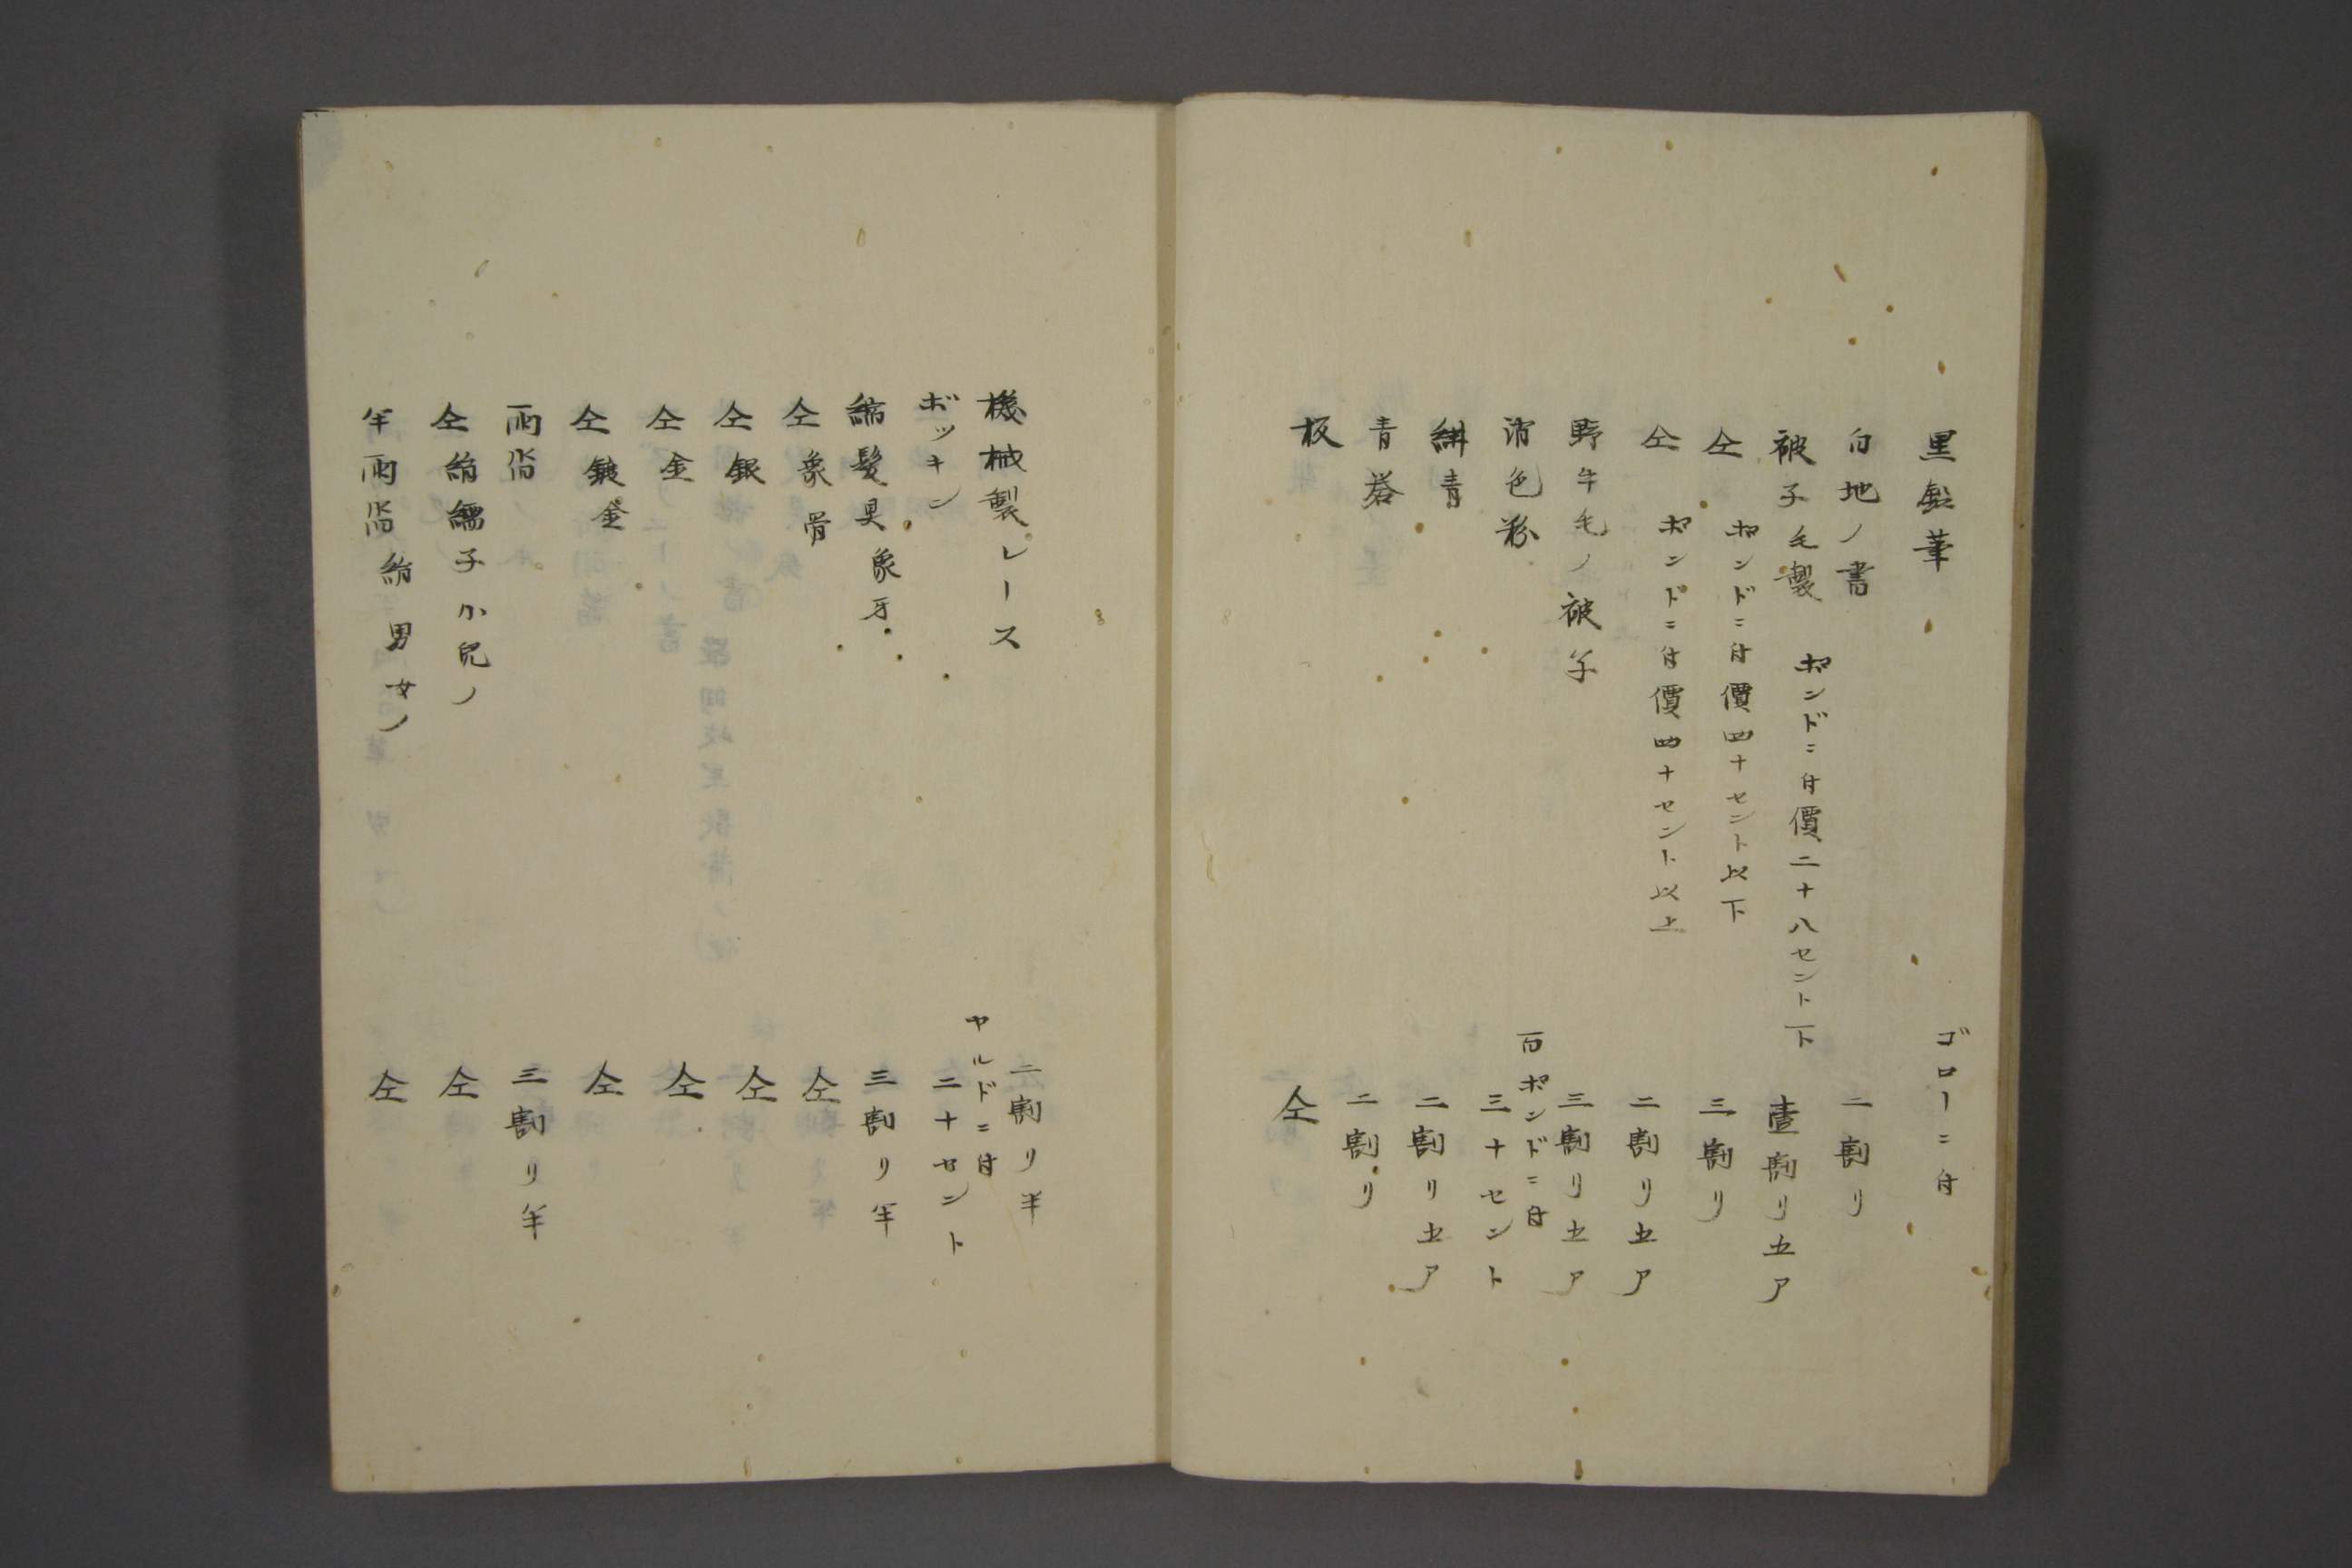 黒鉛筆　ゴローニ付
白地ノ書　二割リ
被子毛製　ポンドニ付價二十八セント下　壹割リ五ア
仝　ポンドニ付價四十セント以下　三割リ
仝　ポンドニ付價四十セント以上　二割リ五ア
野牛毛ノ被子　三割リ五ア
色粉　百ポンドニ付三十セント
青　二割リ五ア
青　二割リ
板　仝
機械製レース　二割リ半
ボッキン　ヤルドニ付二十セント
髪具象牙　三割リ半
仝象骨　仝
仝銀　仝
仝金　仝
仝鍍金　仝
雨　三割リ半
仝　子小児ノ　仝
半雨　男女ノ　仝